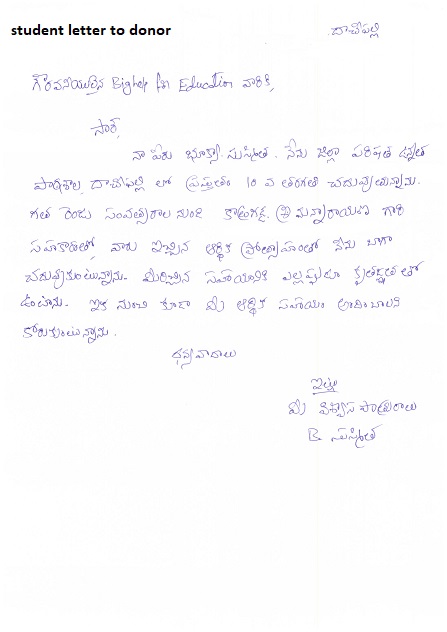 student letter to donor
దాచేపల్లి
గౌరవనీయులైన Bighelp for Education వారికి,
సార్,
నా పేరు భూక్యా. సుస్మిత. నేను జిల్లా పరిషత్ ఉన్నత
పాఠశాల, దాచేపల్లి లో ప్రస్తుతం 10 వ తరగతి చదువుతున్నాను.
గత రెండు సంవత్సరాల నుండి శ్రీమన్నారాయణ గారి
సహకారంతో, వారు ఇచ్చిన ఆర్థిక ప్రోత్సాహంతో నేను బాగా
చదువుకుంటున్నాను. మీరిచ్చిన సహాయానికి ఎల్లప్పుడూ కృతజ్ఞత తో
ఉంటాను. ఇక నుంచి కూడా మీ ఆర్థిక సహాయం అందించాలని
కోరుకుంటున్నాను.
ధన్యవాదాలు
ఇట్లు
మీ విశ్వాస పాత్రురాలు
B. సుస్మిత